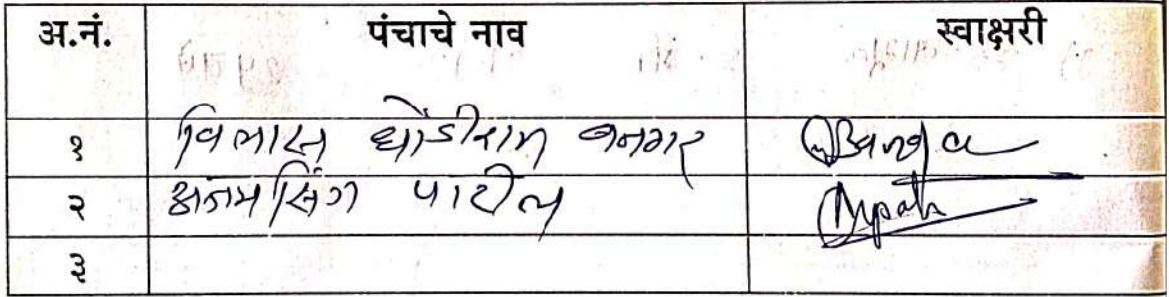 अ.नं. पंचाचे नाव स्वाक्षरी
१ विलास धोंडीराम बनगर
२ पाटील
३